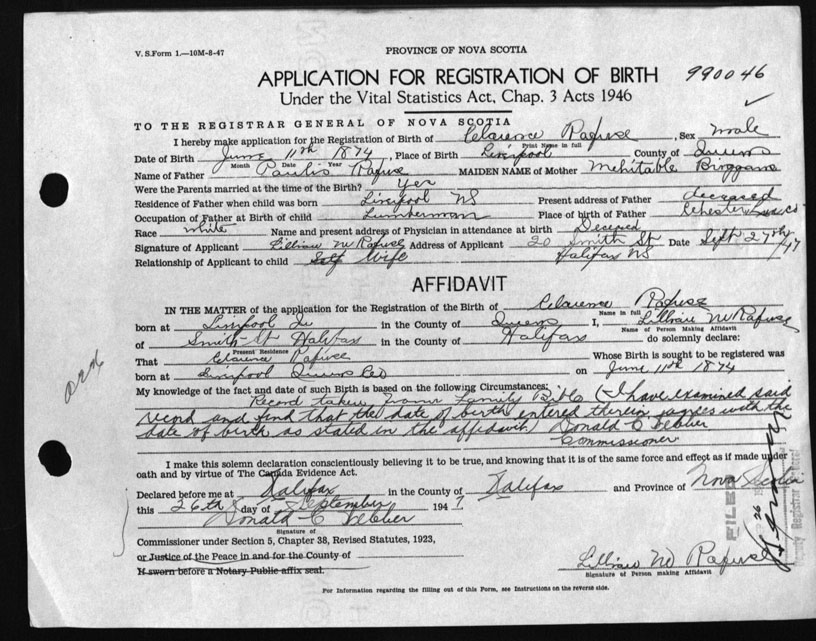 V. S. Form 1.—10M-8-47
PROVINCE OF NOVA SCOTIA
990046
APPLICATION FOR REGISTRATION OF BIRTH
Under the Vital Statistics Act, Chap. 3 Acts 1946
TO THE REGISTRAR GENERAL OF NOVA SCOTIA
I hereby make application for the Registration of Birth of Clarence Rafuse, Sex male
Print Name in full
Date of Birth June 11th 1874, Place of Birth Liverpool County of Queens
Month Date Year
Name of Father Paulis Rafuse MAIDEN NAME of Mother Mehitable
Were the Parents married at the time of the Birth? Yes
Residence of Father when child was born Liverpool NS Present address of Father deceased
Occupation of Father at Birth of child Lumberman Place of birth of Father Chester Lun. Co
Race white Name and present address of Physician in attendance at birth Deceased
Signature of Applicant Lillian M Rafuse Address of Applicant 20 Smith St. Date Sept 27th/47
Relationship of Applicant to child Self Wife Halifax NS
AFFIDAVIT
IN THE MATTER of the application for the Registration of Birth of Clarence Rafuse
Name in full
born at Liverpool in the County of Queens I, Lillian M Rafuse
Name of Person Making Affidavit
of Smith St Halifax in the County of Halifax do solemnly declare:
Present Residence
That Clarence Rafuse Whose Birth is sought to be registered was
born at Liverpool Queens Co on June 11th 1874
My knowledge of the fact and date of such Birth is based on the following Circumstances:
Record taken from Family Bible (I have examined said
record and find that the date of birth entered therein agrees with the
date of birth as stated in the affidavit) Donald C Webber
Commissioner
I make this solemn declaration conscientiously believing it to be true, and knowing that it is of the same force and effect as if made under
oath and by virtue of The Canada Evidence Act.
Declared before me at Halifax in the County of Halifax and Province of Nova Scotia
this 26th day of September 1947
Donald C Webber
Signature of
Commissioner under Section 5, Chapter 38, Revised Statutes, 1923,
or Justice of the Peace in and for the County of
If sworn before a Notary Public affix seal.
FILED
26
Lillian M Rafuse
Signature of Person making Affidavit
For Information regarding the filling out of this Form, see Instructions on the reverse side.